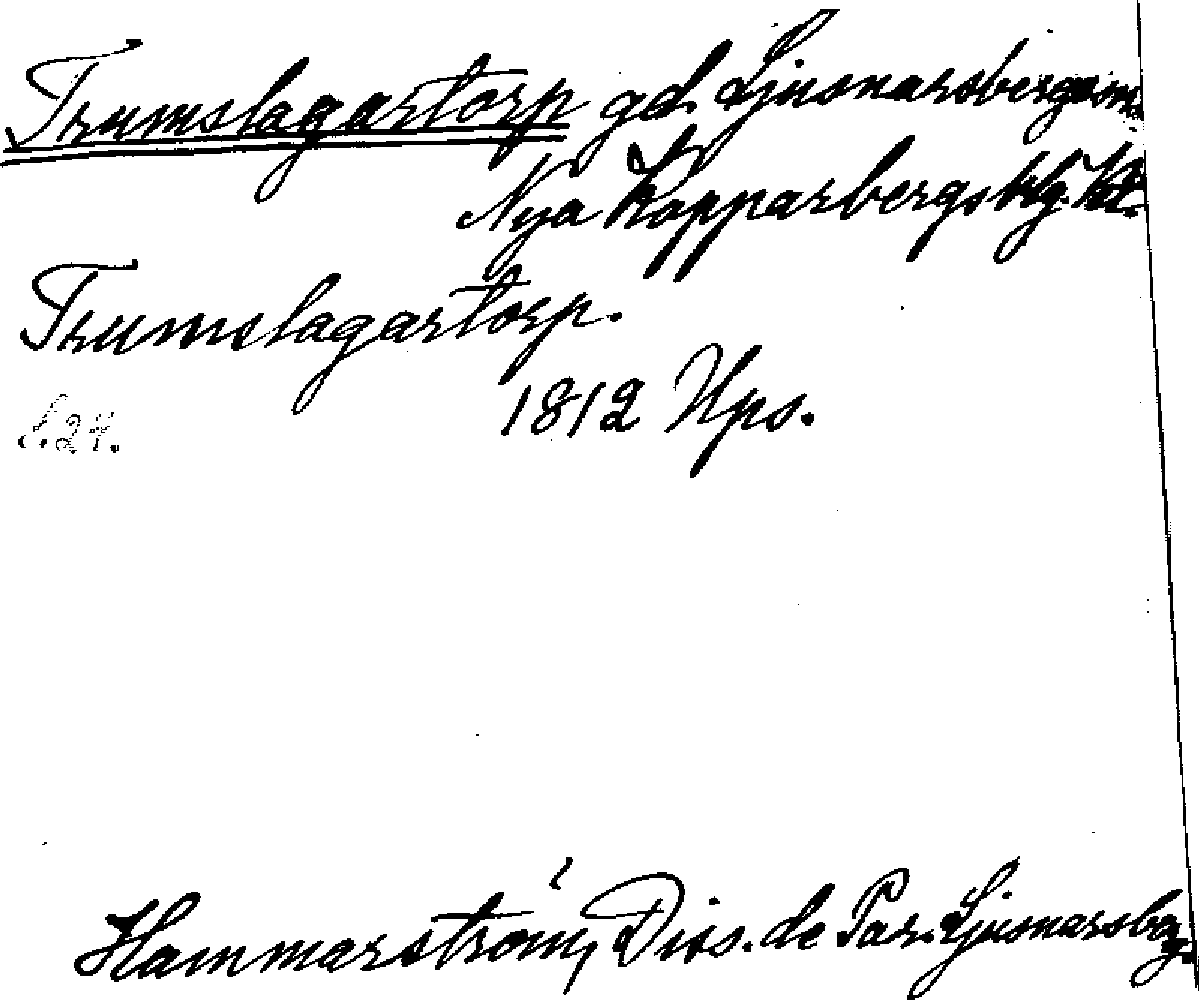 Trumslagartorp gd. Ljusnarsbergs sn.
Nya Kopparbergs blg. Vstm.
Trumslagartorp.
s. 24.
1812 Ups.
Hammarström, Diss. de Par. Ljusnarsbg.